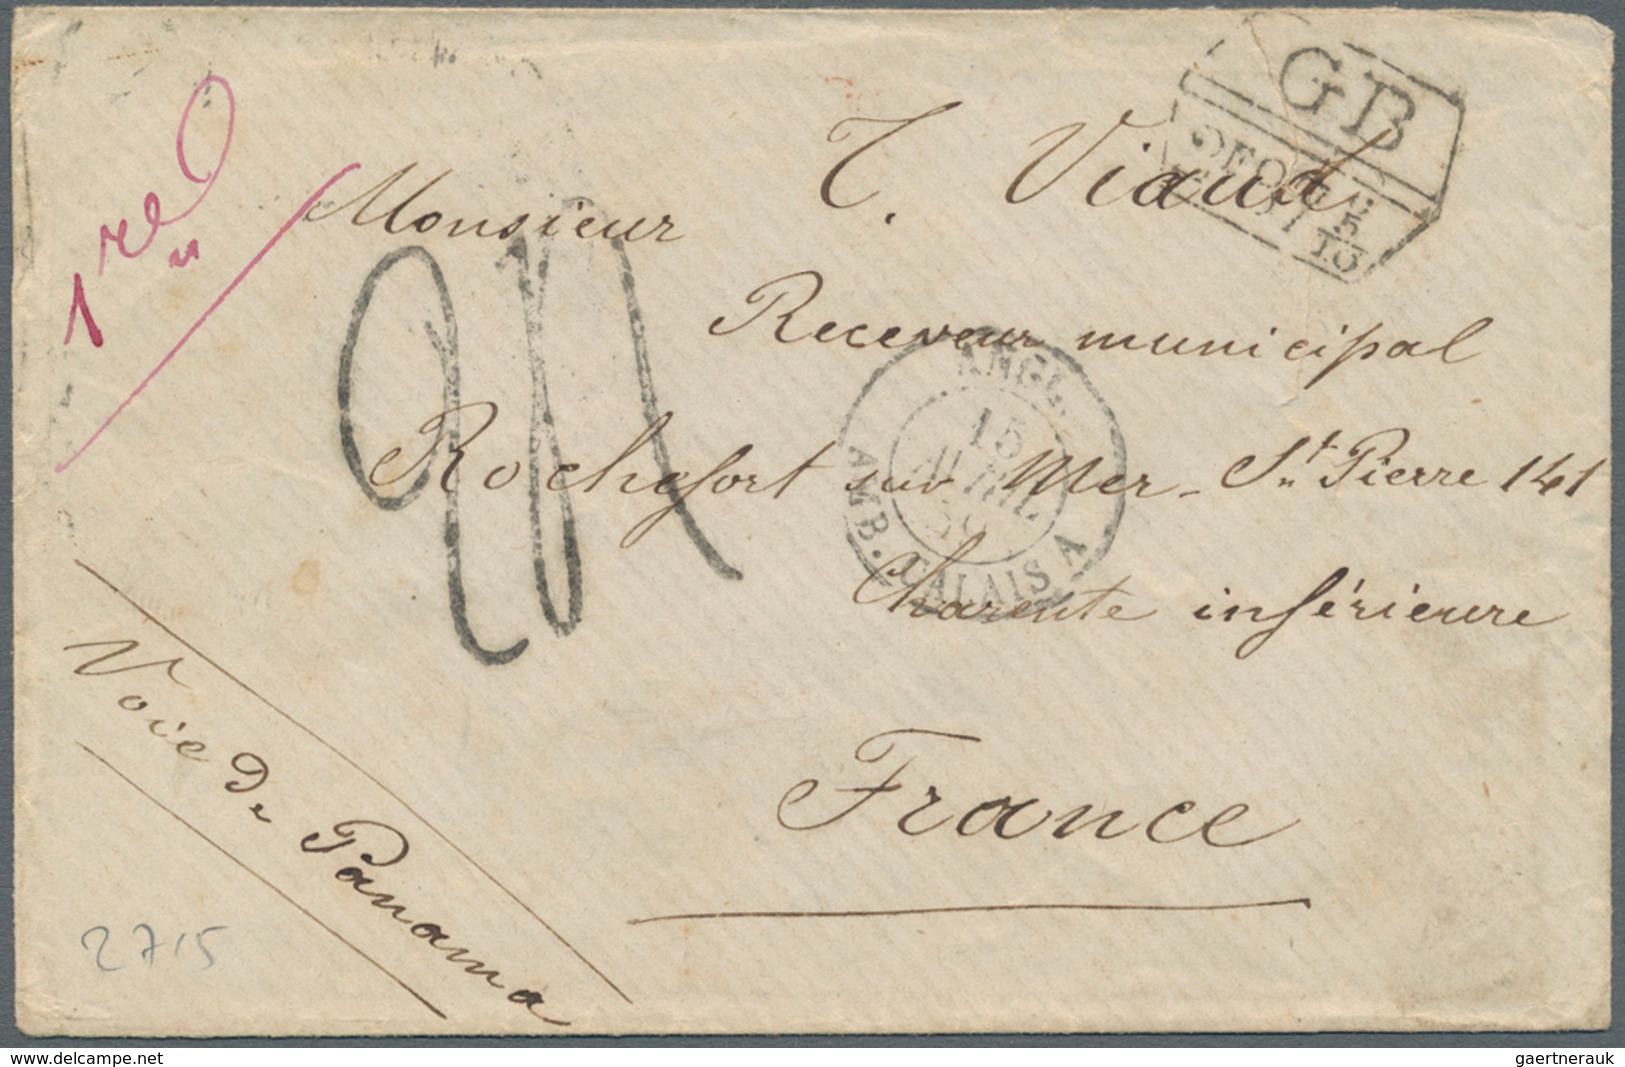 1re
GB
T. Viaud
Monsieur
Receveur municipal
ANGL.
15
AVRIL
AMB. CALAIS A
Rochefort sur Mer - St. Pierre 141
Charente inférieure
France
Voie De Panama
2715
www.delcampe.net
gaertnerauk